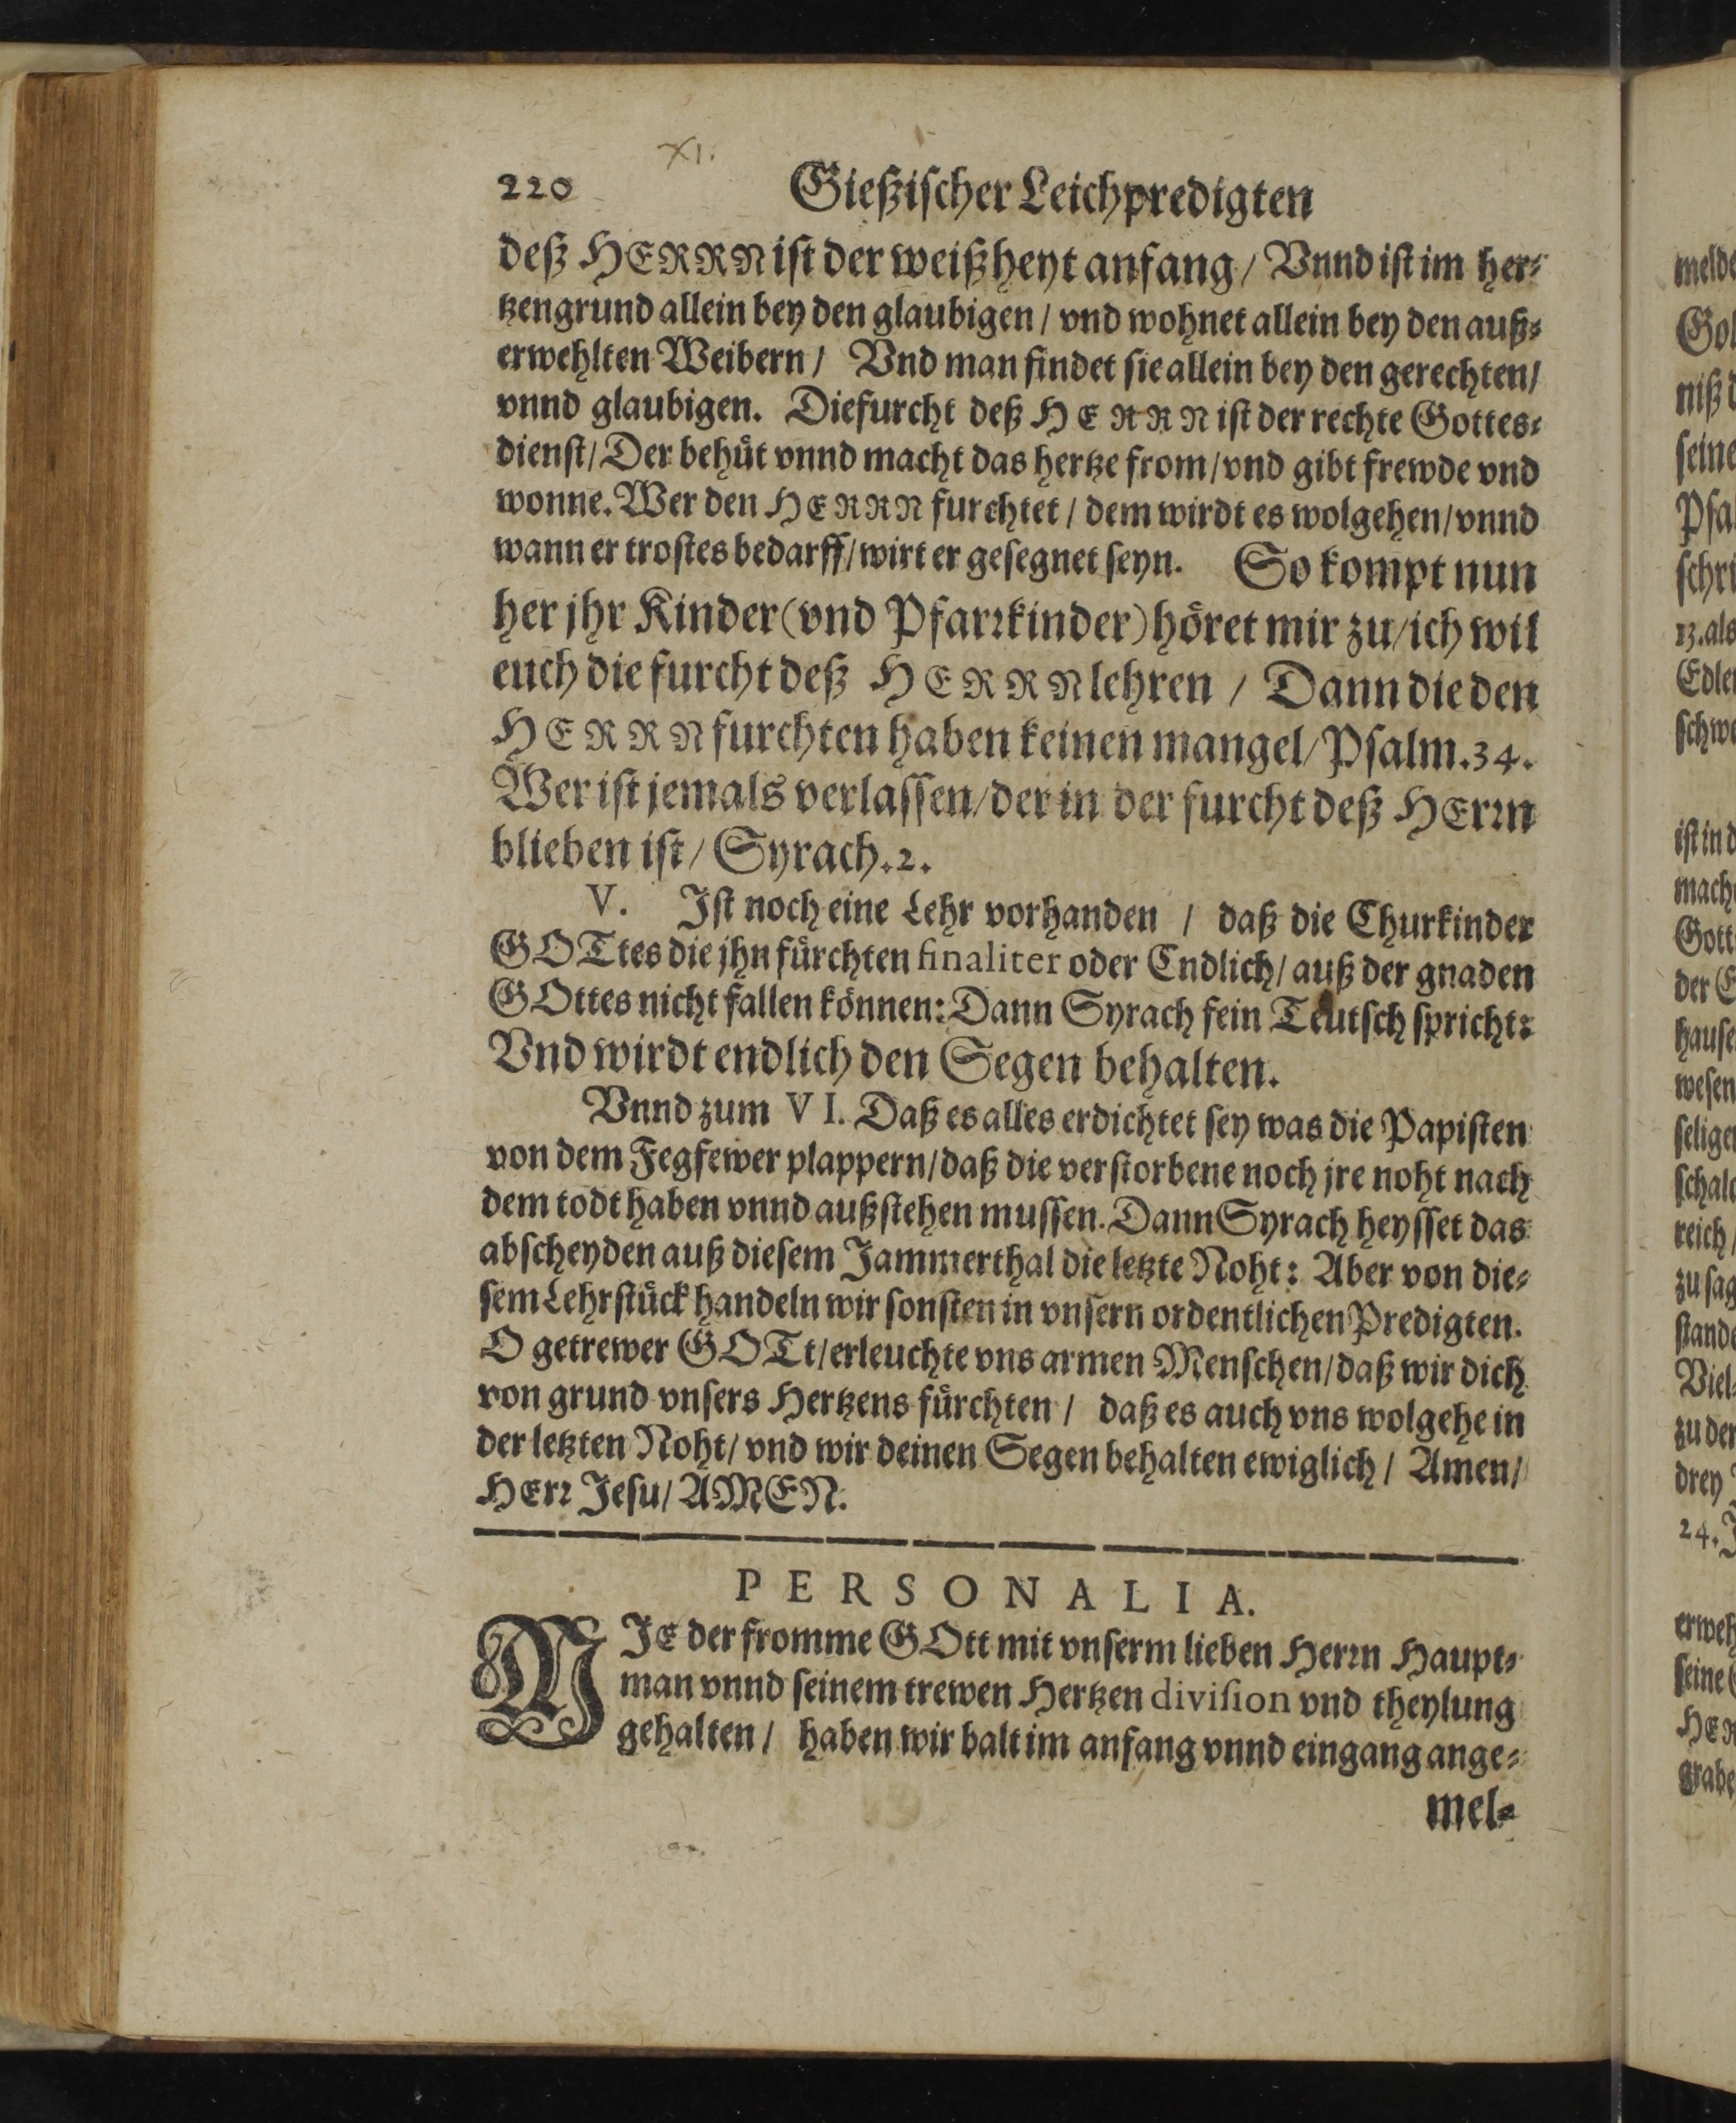 XI.
220 Gießischer Leichpredigten
deß HERRN ist der weißheyt anfang / Vnnd ist im her-
tzengrund allein bey den glaubigen / vnd wohnet allein bey den auß-
erwehlten Weibern / Vnd man findet sie allein bey den gerechten /
vnnd glaubigen. Die furcht deß HERRN ist der rechte Gottes-
dienst / Der behüt vnnd macht das hertze from / vnd gibt frewde vnd
wonne. Wer den HERRN furchtet / dem wirdt es wolgehen / vnnd
wann er trostes bedarff / wirt er gesegnet seyn. So kompt nun
her jhr Kinder (vnd Pfarrkinder) höret mir zu / ich wil
euch die furcht deß HERRN lehren / Dann die den
HERRN furchten haben keinen mangel / Psalm. 34.
Wer ist jemals verlassen / der in der furcht deß HErrn
blieben ist / Syrach. 2.
V. Ist noch eine Lehr vorhanden / daß die Churkinder
GOTtes die jhn fürchten finaliter oder Endlich / auß der gnaden
GOttes nicht fallen können: Dann Syrach fein Teutsch spricht:
Vnd wirdt endlich den Segen behalten.
Vnnd zum VI. Daß es alles erdichtet sey was die Papisten
von dem Fegfewer plappern / daß die verstorbene noch jre noht nach
dem todt haben vnnd außstehen mussen. Dann Syrach heysset das
abscheyden auß diesem Jammerthal die letzte Noht: Aber von die-
sem Lehrstück handeln wir sonsten in vnsern ordentlichen Predigten.
O getrewer GOTt / erleuchte vns armen Menschen / daß wir dich
von grund vnsers Hertzens fürchten / daß es auch vns wolgehe in
der letzten Noht / vnd wir deinen Segen behalten ewiglich / Amen /
HErr Jesu / AMEN.
PERSONALIA.
MJE der fromme GOtt mit vnserm lieben Herrn Haupt-
man vnnd seinem trewen Hertzen division vnd theylung
gehalten / haben wir balt im anfang vnnd eingang ange-
mel-